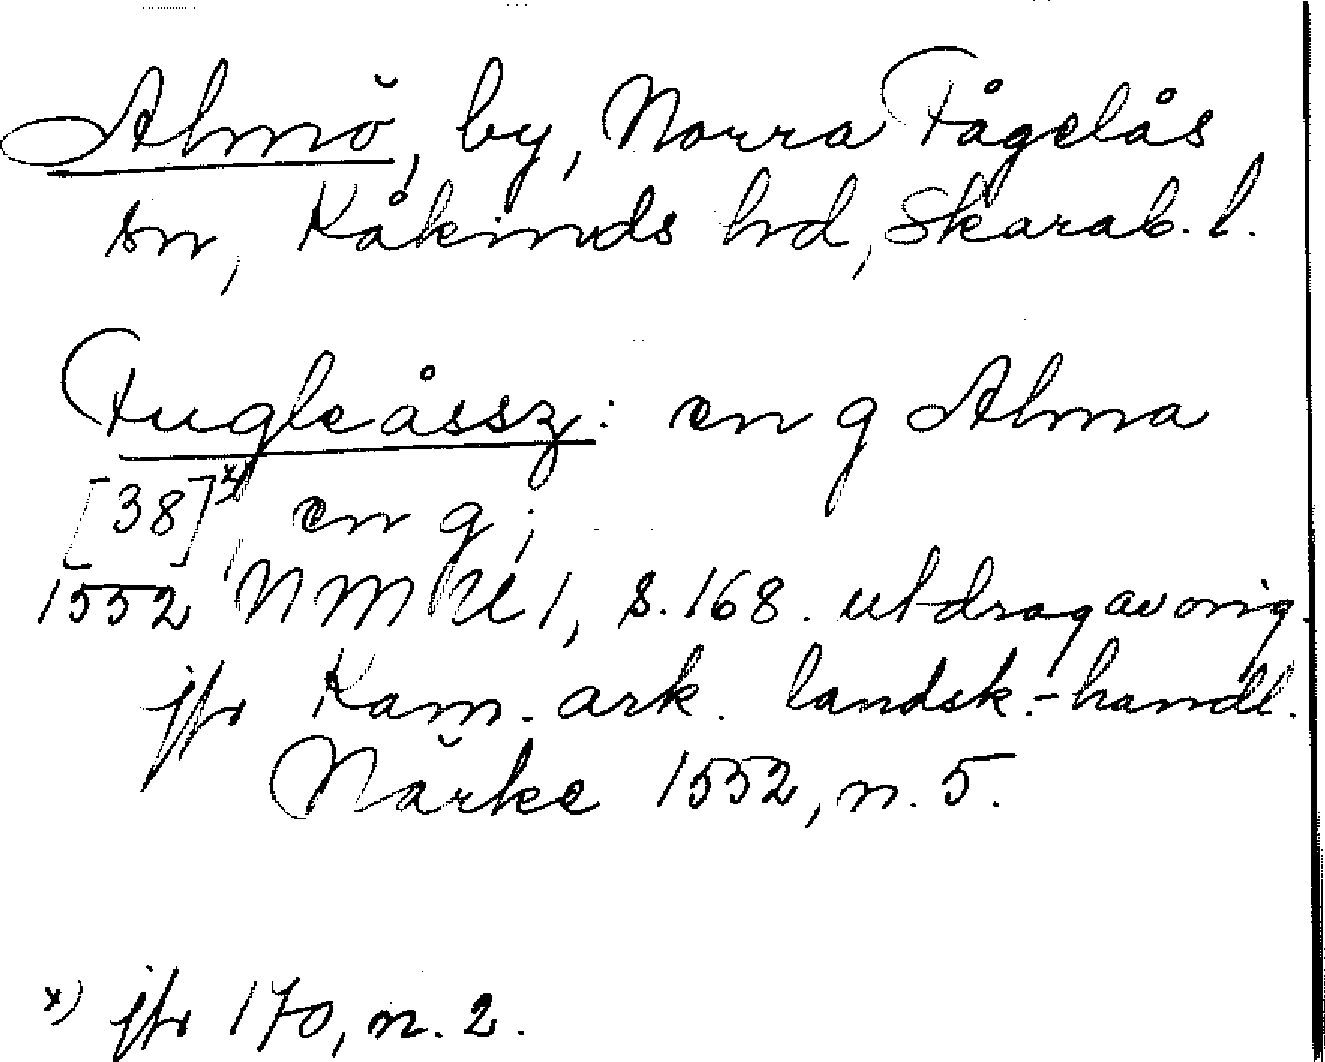 Almö, by, Norra Fågelås
sn, Kåkinds hd, Skarab. l.
Fugleåssz: en g Alma
[38]x), en g;
1552 NMU 1, s. 168. utdrag av orig.
jfr Kam. ark. landsk.-handl.
Närke 1552, n. 5.
x) jfr 170, n. 2.